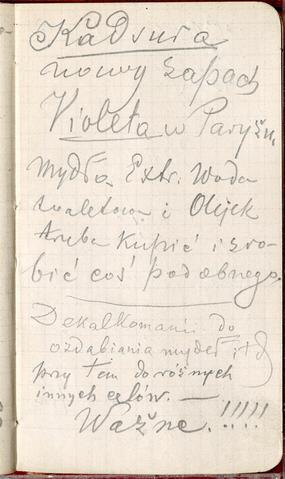 Kadsura
nowy zapach
Violeta w Paryżu.
Mydła Extr. Woda
toaletowa i Olejek
trzeba kupić i zro-
bić coś podobnego.
Dekalkomanii do
ozdabiania mydeł itd
przy tem do różnych
innych celów. —
Ważne. !!!!!